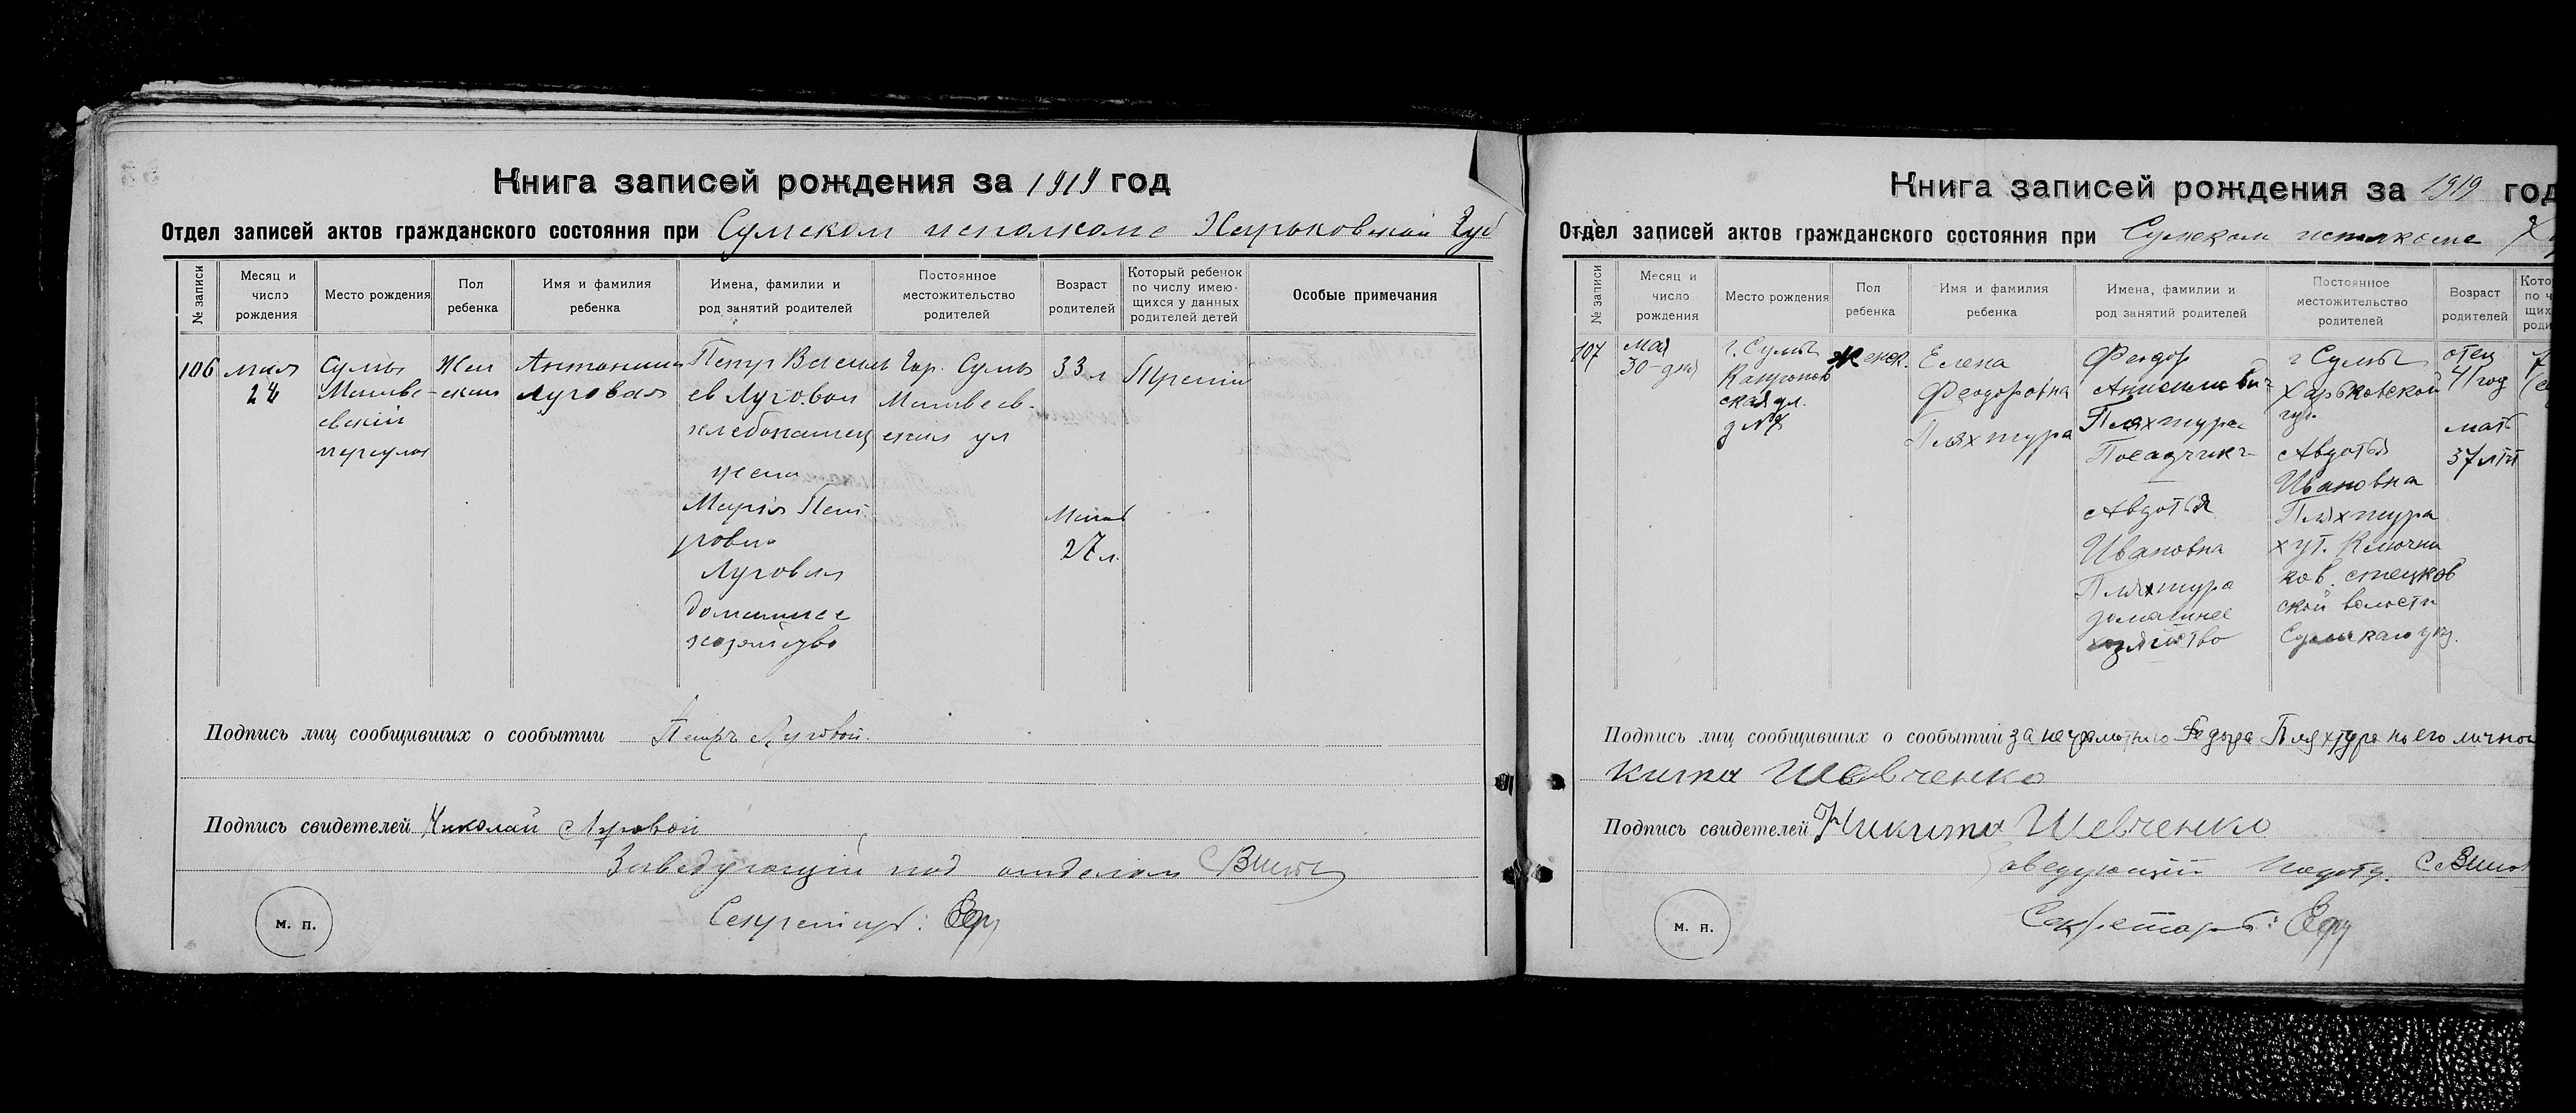 Книга записей рождения за 1919 год
Отдел записей актов гражданского состояния при Сумском исполкоме Харьковской Губ
№ записи
Месяц и число рождения
Место рождения
Пол ребенка
Имя и фамилия ребенка
Имена, фамилии и род занятий родителей
Постоянное местожительство родителей
Возраст родителей
Который ребенок по числу имеющихся у данных родителей детей
Особые примечания
106
мая
24
Сумы
Матве-
евский
переулок
Жен
ский
Антонина
Луговая
Петр Васил
ев Луговой
хлебопашец
жена
Мария Пет
ровна
Луговая
домашнее
хозяйство
Гор. Сумы
Матвеев-
ская ул
33 л
Мать
27 л.
Третий
Подпись лиц сообщивших о сообытии Петръ Луговой.
Подпись свидетелей Николай Луговой
Заведующий под отделом
Секретарь:
м. п.
Книга записей рождения за 1919 год
Отдел записей актов гражданского состояния при Сумском исполкоме Ха
№ записи
Месяц и число рождения
Место рождения
Пол ребенка
Имя и фамилия ребенка
Имена, фамилии и род занятий родителей
Постоянное местожительство родителей
Возраст родителей
107
мая
30-дня
г. Сумы
ская ул.
Женск.
Елена
Феодоровна
Пляхтура
Феодор
Пляхтура
Авдотья
Ивановна
Пляхтура
домашнее
хозяйство
г Сумы
Харьковской
губ.
Авдотья
Ивановна
Пляхтура
хут. Ключни
ков. стецков
ской волости
Сумскаго уез.
отец
41 год
мать
37 лет
Подпись лиц сообщивших о сообытии за неграмотного Федора Пляхтура по его личной
кита Шевченко
Подпись свидетелей Никита Шевченко
Заведующий Подотд.
Секретарь:
м. п.